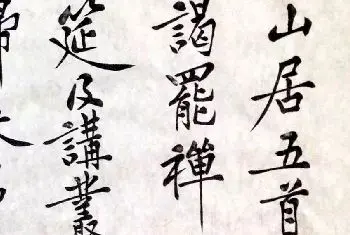 山居五首
謁罷禪
筵及講叢